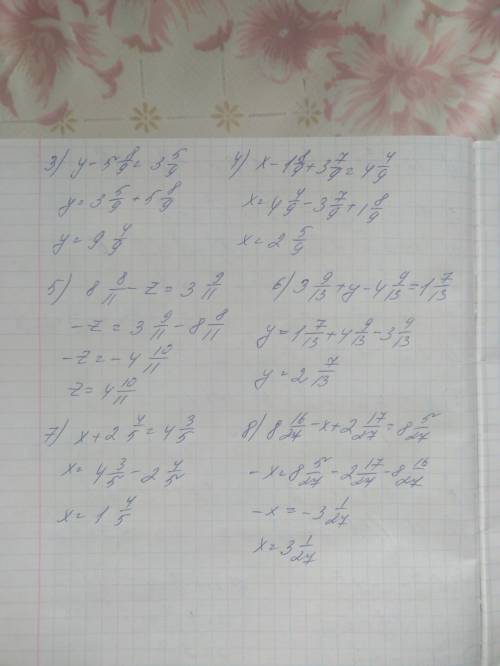 3) y - 5 8/9 = 3 5/9
y = 3 5/9 + 5 8/9
y = 9 4/9
4) x - 1 8/9 + 3 7/9 = 4 4/9
x = 4 4/9 - 3 7/9 + 1 8/9
x = 2 5/9
5) 8 8/11 - z = 3 9/11
-z = 3 9/11 - 8 8/11
-z = -4 10/11
z = 4 10/11
6) 3 9/13 + y - 4 9/13 = 1 7/13
y = 1 7/13 + 4 9/13 - 3 9/13
y = 2 7/13
7) x + 2 4/5 = 4 3/5
x = 4 3/5 - 2 4/5
x = 1 4/5
8) 8 16/27 - x + 2 17/27 = 8 5/27
-x = 8 5/27 - 2 17/27 - 8 16/27
-x = -3 1/27
x = 3 1/27